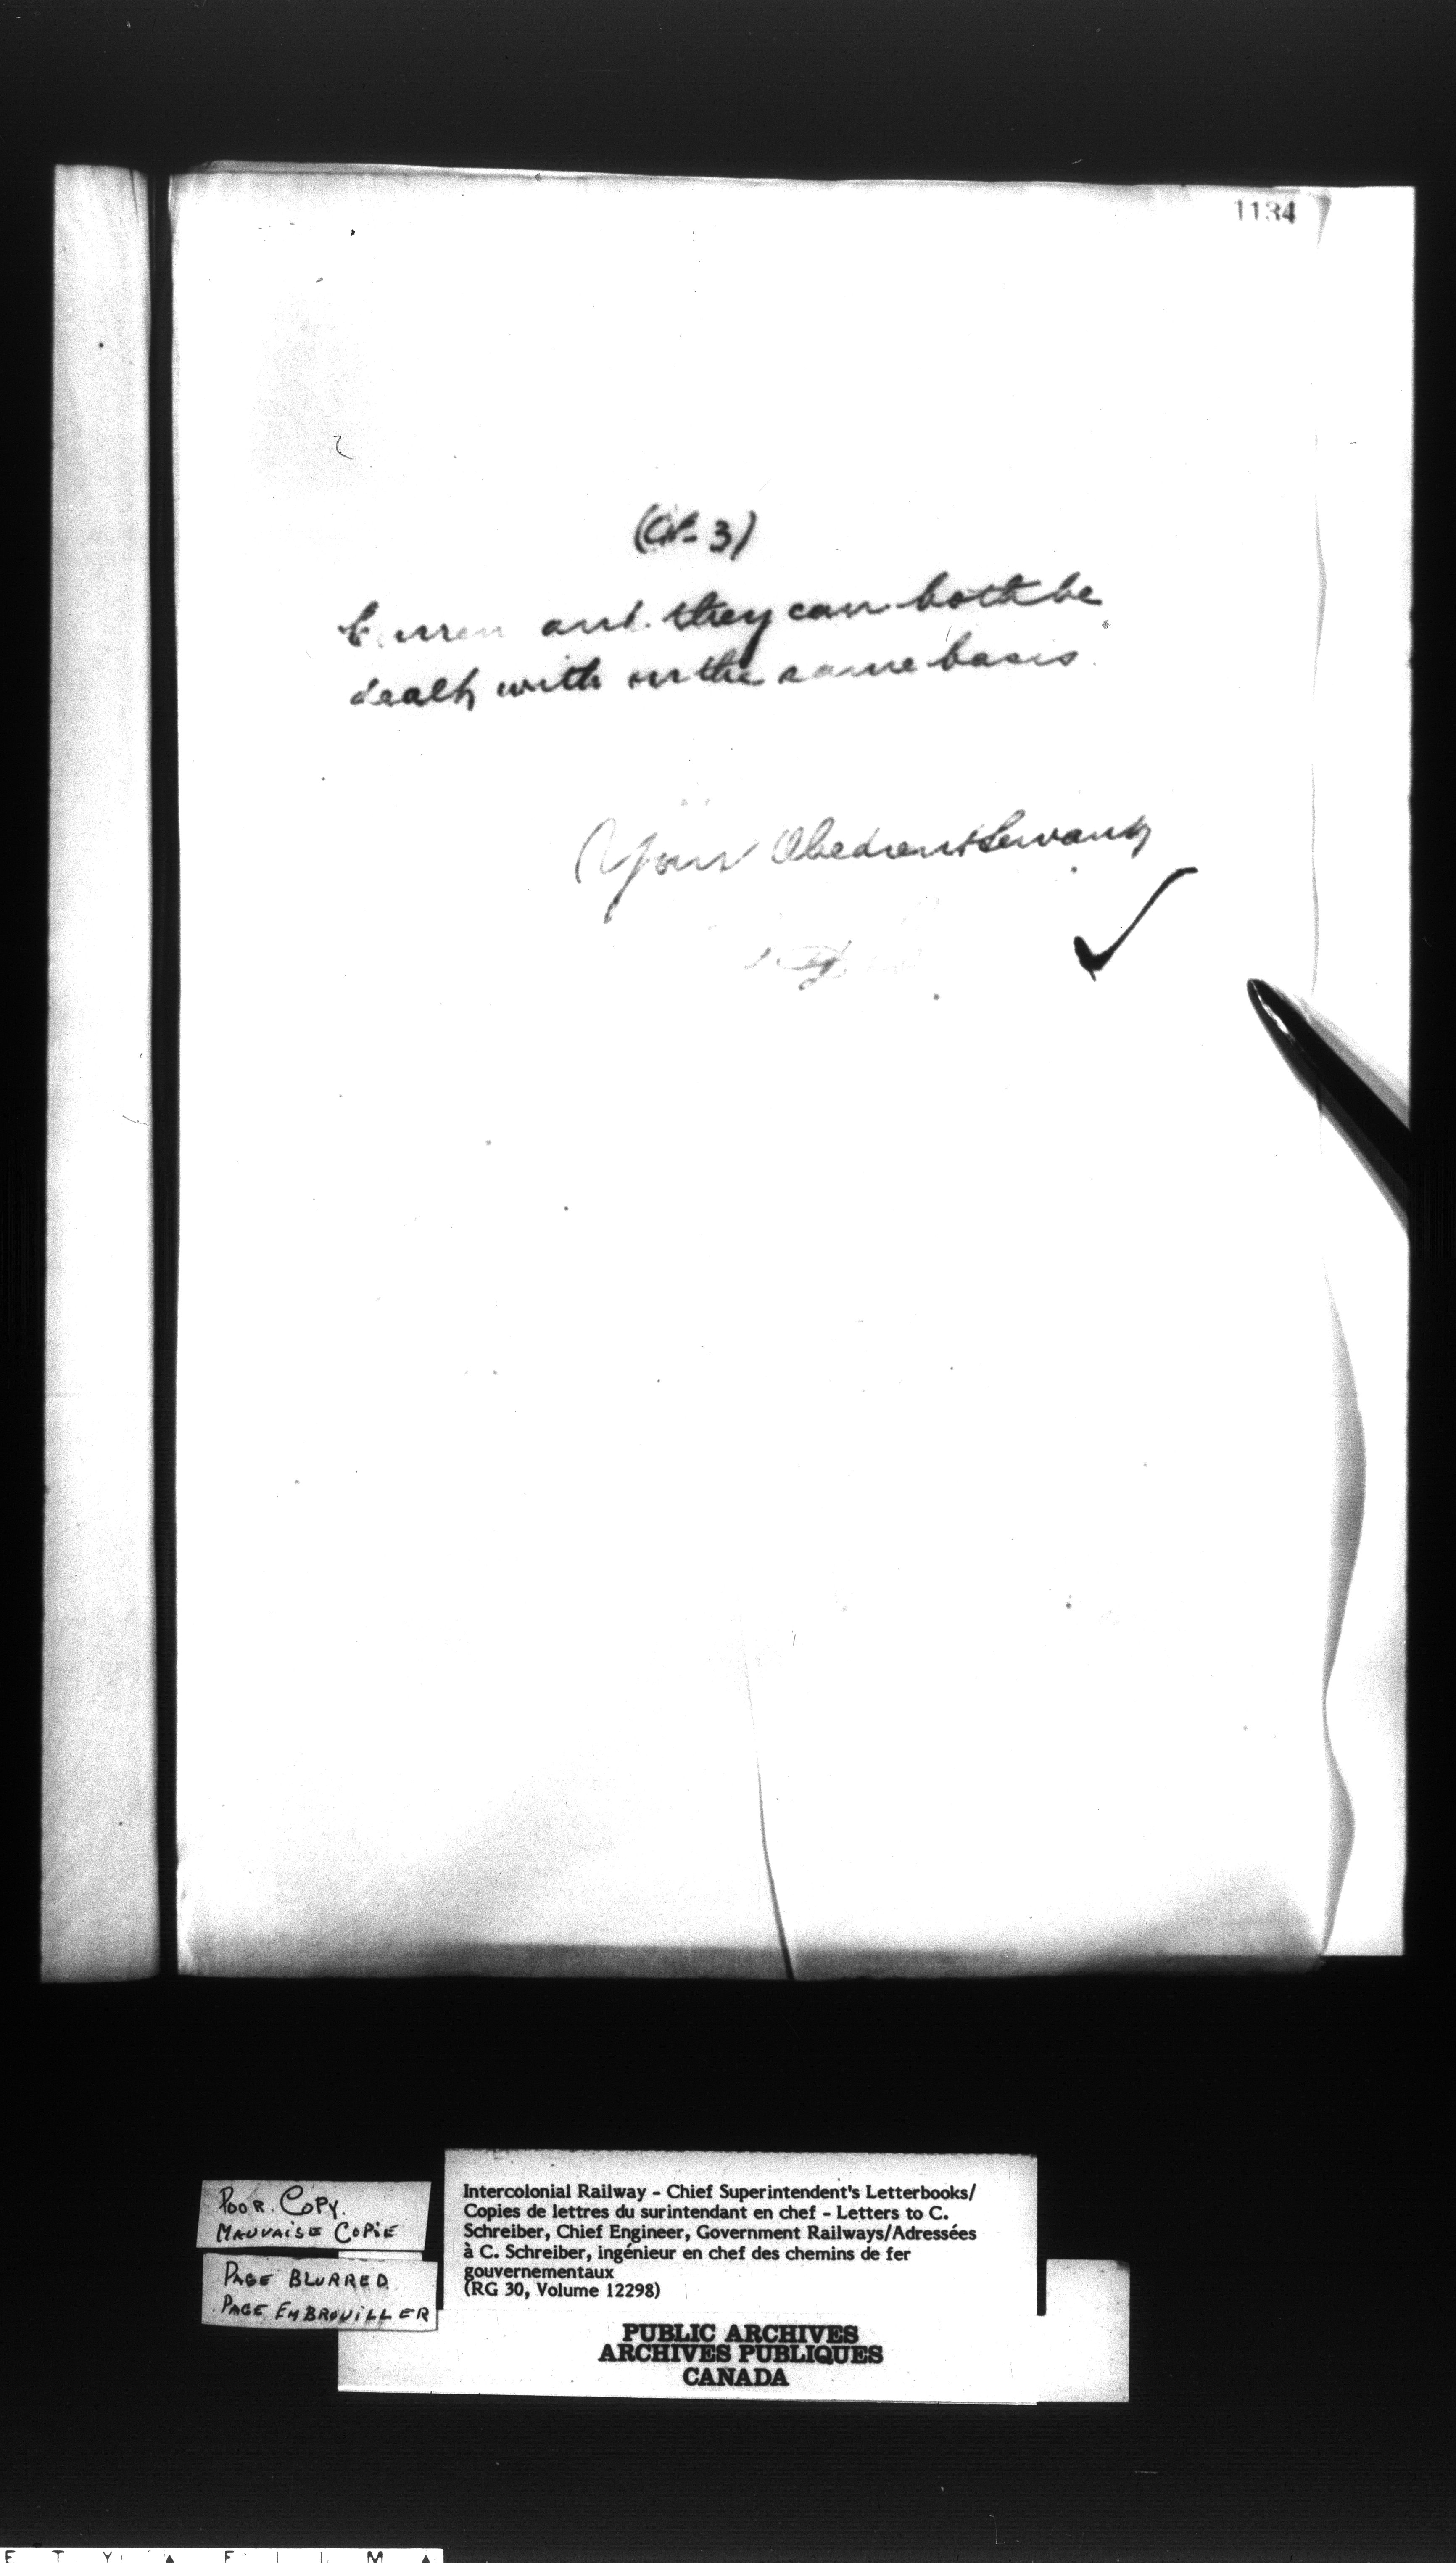 1134
and they can both be
dealt with on the same basis
Your Obedient Servant
POOR COPY.
MAUVAISE COPIE
PAGE BLURRED
PAGE EMBROUILLER
Intercolonial Railway - Chief Superintendent's Letterbooks/
Copies de lettres du surintendant en chef - Letters to C.
Schreiber, Chief Engineer, Government Railways/Adressées
à C. Schreiber, ingénieur en chef des chemins de fer
gouvernementaux
(RG 30, Volume 12298)
PUBLIC ARCHIVES
ARCHIVES PUBLIQUES
CANADA